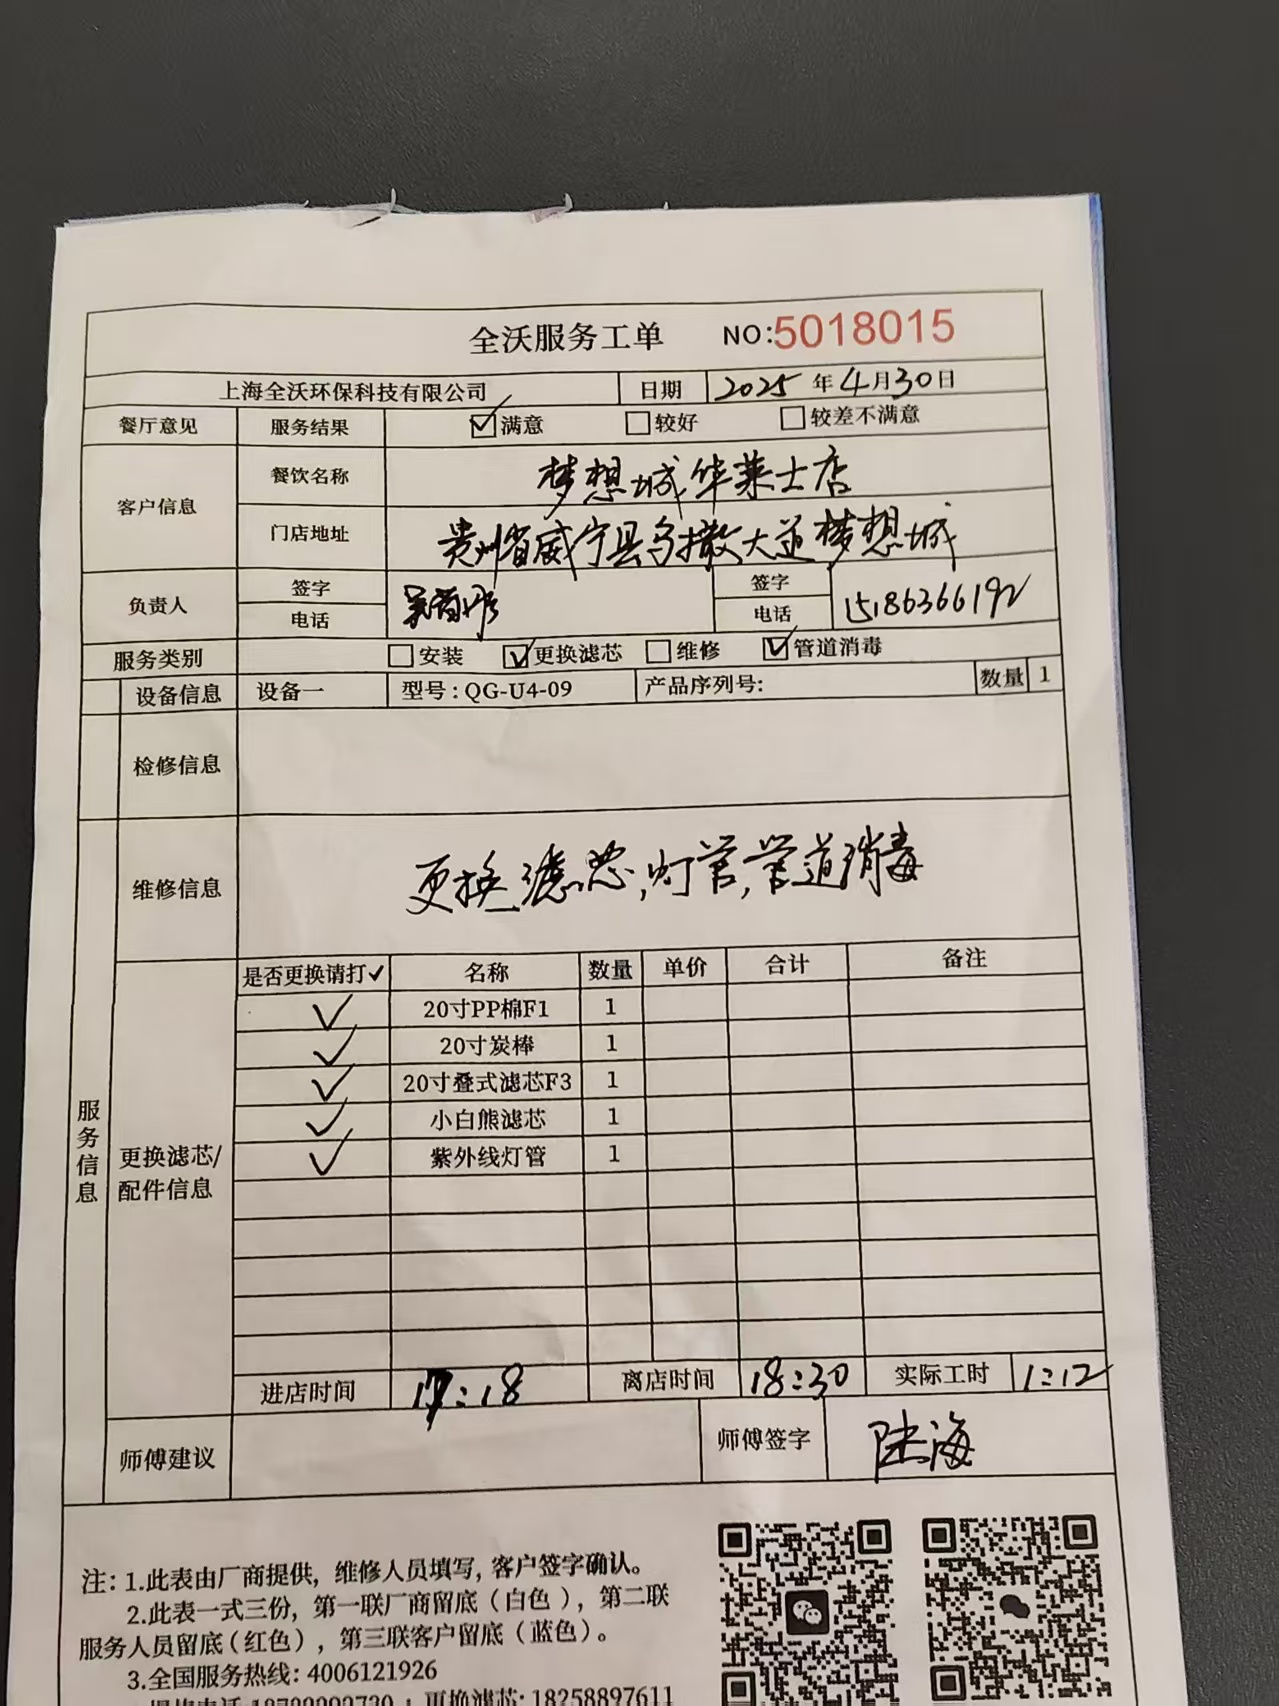 全沃服务工单 NO:5018015
上海全沃环保科技有限公司 日期 2025年4月30日
餐厅意见 服务结果 ☑满意 □较好 □较差不满意
客户信息 餐饮名称 梦想城华莱士店
门店地址 贵州省威宁县乌撒大道梦想城
负责人 签字 签字
电话 电话 15186366192
服务类别 □安装 ☑更换滤芯 □维修 ☑管道消毒
设备信息 设备一 型号:QG-U4-09 产品序列号: 数量 1
检修信息
维修信息 更换滤芯,灯管,管道消毒
服务信息
更换滤芯/配件信息
是否更换请打✓ 名称 数量 单价 合计 备注
✓ 20寸PP棉F1 1
✓ 20寸炭棒 1
✓ 20寸叠式滤芯F3 1
✓ 小白熊滤芯 1
✓ 紫外线灯管 1
进店时间 17:18 离店时间 18:30 实际工时 1:12
师傅建议 师傅签字 陆海
注: 1.此表由厂商提供, 维修人员填写, 客户签字确认。
2.此表一式三份, 第一联厂商留底(白色), 第二联
服务人员留底(红色), 第三联客户留底(蓝色)。
3.全国服务热线: 4006121926
更换滤芯: 18258897611